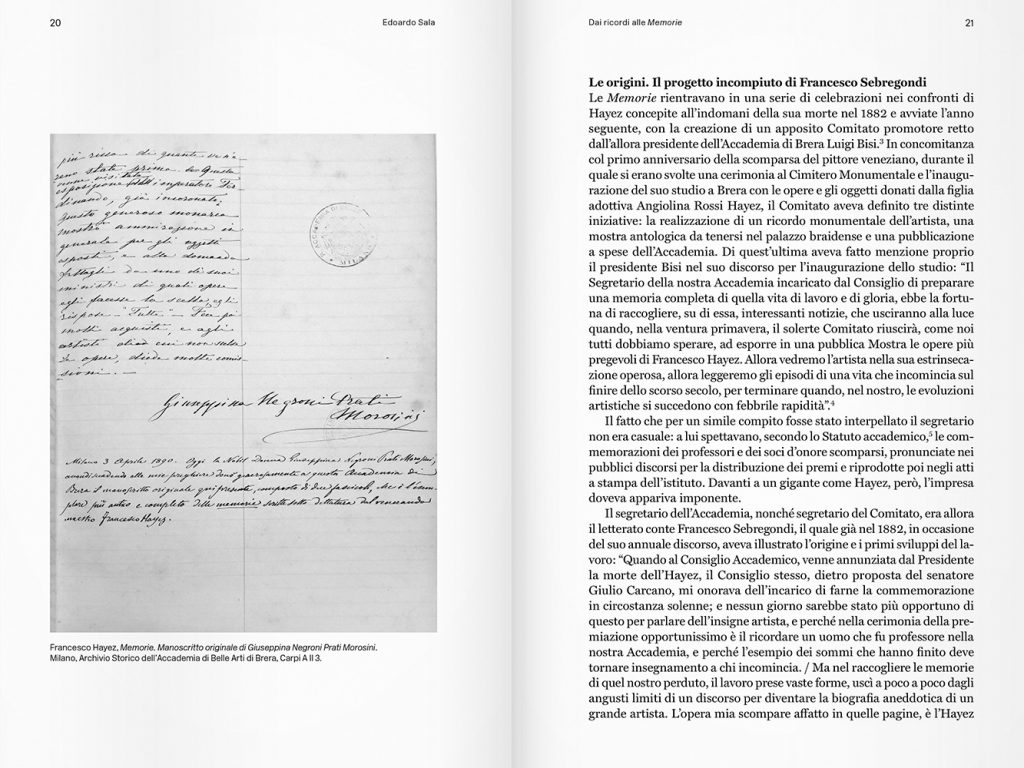 20
Edoardo Sala
più ricca di quante v'e-
rano state prima. In questa
esposizione l'imperatore Fer-
dinando, già incoronato,
questo generoso monarca
mostrò ammirazione in
generale per gli oggetti
esposti, e alla domanda
fattagli da uno di suoi
ministri di quali opere
egli facesse la scelta, egli
rispose "Tutte" - Fece poi
molti acquisti, e agli
artisti
le opere, diede molte comis-
sioni. —
Giuseppina Negroni Prati
Morosini
ACCADEMIA DI
MILANO
Milano 3 Aprile 1890. Oggi la Nobil Donna Giuseppina Negroni Prati Morosini,
accondiscendendo alle mie preghiere donò generosamente a questa Accademia di
Brera il manoscritto originale qui presente, composto di due fascicoli, che è l'esem-
plare più antico e completo delle memorie scritte sotto dettatura del venerando
maestro Francesco Hayez.
Francesco Hayez, Memorie. Manoscritto originale di Giuseppina Negroni Prati Morosini.
Milano, Archivio Storico dell'Accademia di Belle Arti di Brera, Carpi A II 3.
Dai ricordi alle Memorie
21
Le origini. Il progetto incompiuto di Francesco Sebregondi
Le Memorie rientravano in una serie di celebrazioni nei confronti di
Hayez concepite all'indomani della sua morte nel 1882 e avviate l'anno
seguente, con la creazione di un apposito Comitato promotore retto
dall'allora presidente dell'Accademia di Brera Luigi Bisi.³ In concomitanza
col primo anniversario della scomparsa del pittore veneziano, durante il
quale si erano svolte una cerimonia al Cimitero Monumentale e l'inaugu-
razione del suo studio a Brera con le opere e gli oggetti donati dalla figlia
adottiva Angiolina Rossi Hayez, il Comitato aveva definito tre distinte
iniziative: la realizzazione di un ricordo monumentale dell'artista, una
mostra antologica da tenersi nel palazzo braidense e una pubblicazione
a spese dell'Accademia. Di quest'ultima aveva fatto menzione proprio
il presidente Bisi nel suo discorso per l'inaugurazione dello studio: “Il
Segretario della nostra Accademia incaricato dal Consiglio di preparare
una memoria completa di quella vita di lavoro e di gloria, ebbe la fortu-
na di raccogliere, su di essa, interessanti notizie, che usciranno alla luce
quando, nella ventura primavera, il solerte Comitato riuscirà, come noi
tutti dobbiamo sperare, ad esporre in una pubblica Mostra le opere più
pregevoli di Francesco Hayez. Allora vedremo l'artista nella sua estrinseca-
zione operosa, allora leggeremo gli episodi di una vita che incomincia sul
finire dello scorso secolo, per terminare quando, nel nostro, le evoluzioni
artistiche si succedono con febbrile rapidità”.⁴
Il fatto che per un simile compito fosse stato interpellato il segretario
non era casuale: a lui spettavano, secondo lo Statuto accademico,⁵ le com-
memorazioni dei professori e dei soci d'onore scomparsi, pronunciate nei
pubblici discorsi per la distribuzione dei premi e riprodotte poi negli atti
a stampa dell'istituto. Davanti a un gigante come Hayez, però, l'impresa
doveva appariva imponente.
Il segretario dell'Accademia, nonché segretario del Comitato, era allora
il letterato conte Francesco Sebregondi, il quale già nel 1882, in occasione
del suo annuale discorso, aveva illustrato l'origine e i primi sviluppi del la-
voro: “Quando al Consiglio Accademico, venne annunziata dal Presidente
la morte dell'Hayez, il Consiglio stesso, dietro proposta del senatore
Giulio Carcano, mi onorava dell'incarico di farne la commemorazione
in circostanza solenne; e nessun giorno sarebbe stato più opportuno di
questo per parlare dell'insigne artista, e perché nella cerimonia della pre-
miazione opportunissimo è il ricordare un uomo che fu professore nella
nostra Accademia, e perché l'esempio dei sommi che hanno finito deve
tornare insegnamento a chi incomincia. / Ma nel raccogliere le memorie
di quel nostro perduto, il lavoro prese vaste forme, uscì a poco a poco dagli
angusti limiti di un discorso per diventare la biografia aneddotica di un
grande artista. L'opera mia scompare affatto in quelle pagine, è l'Hayez